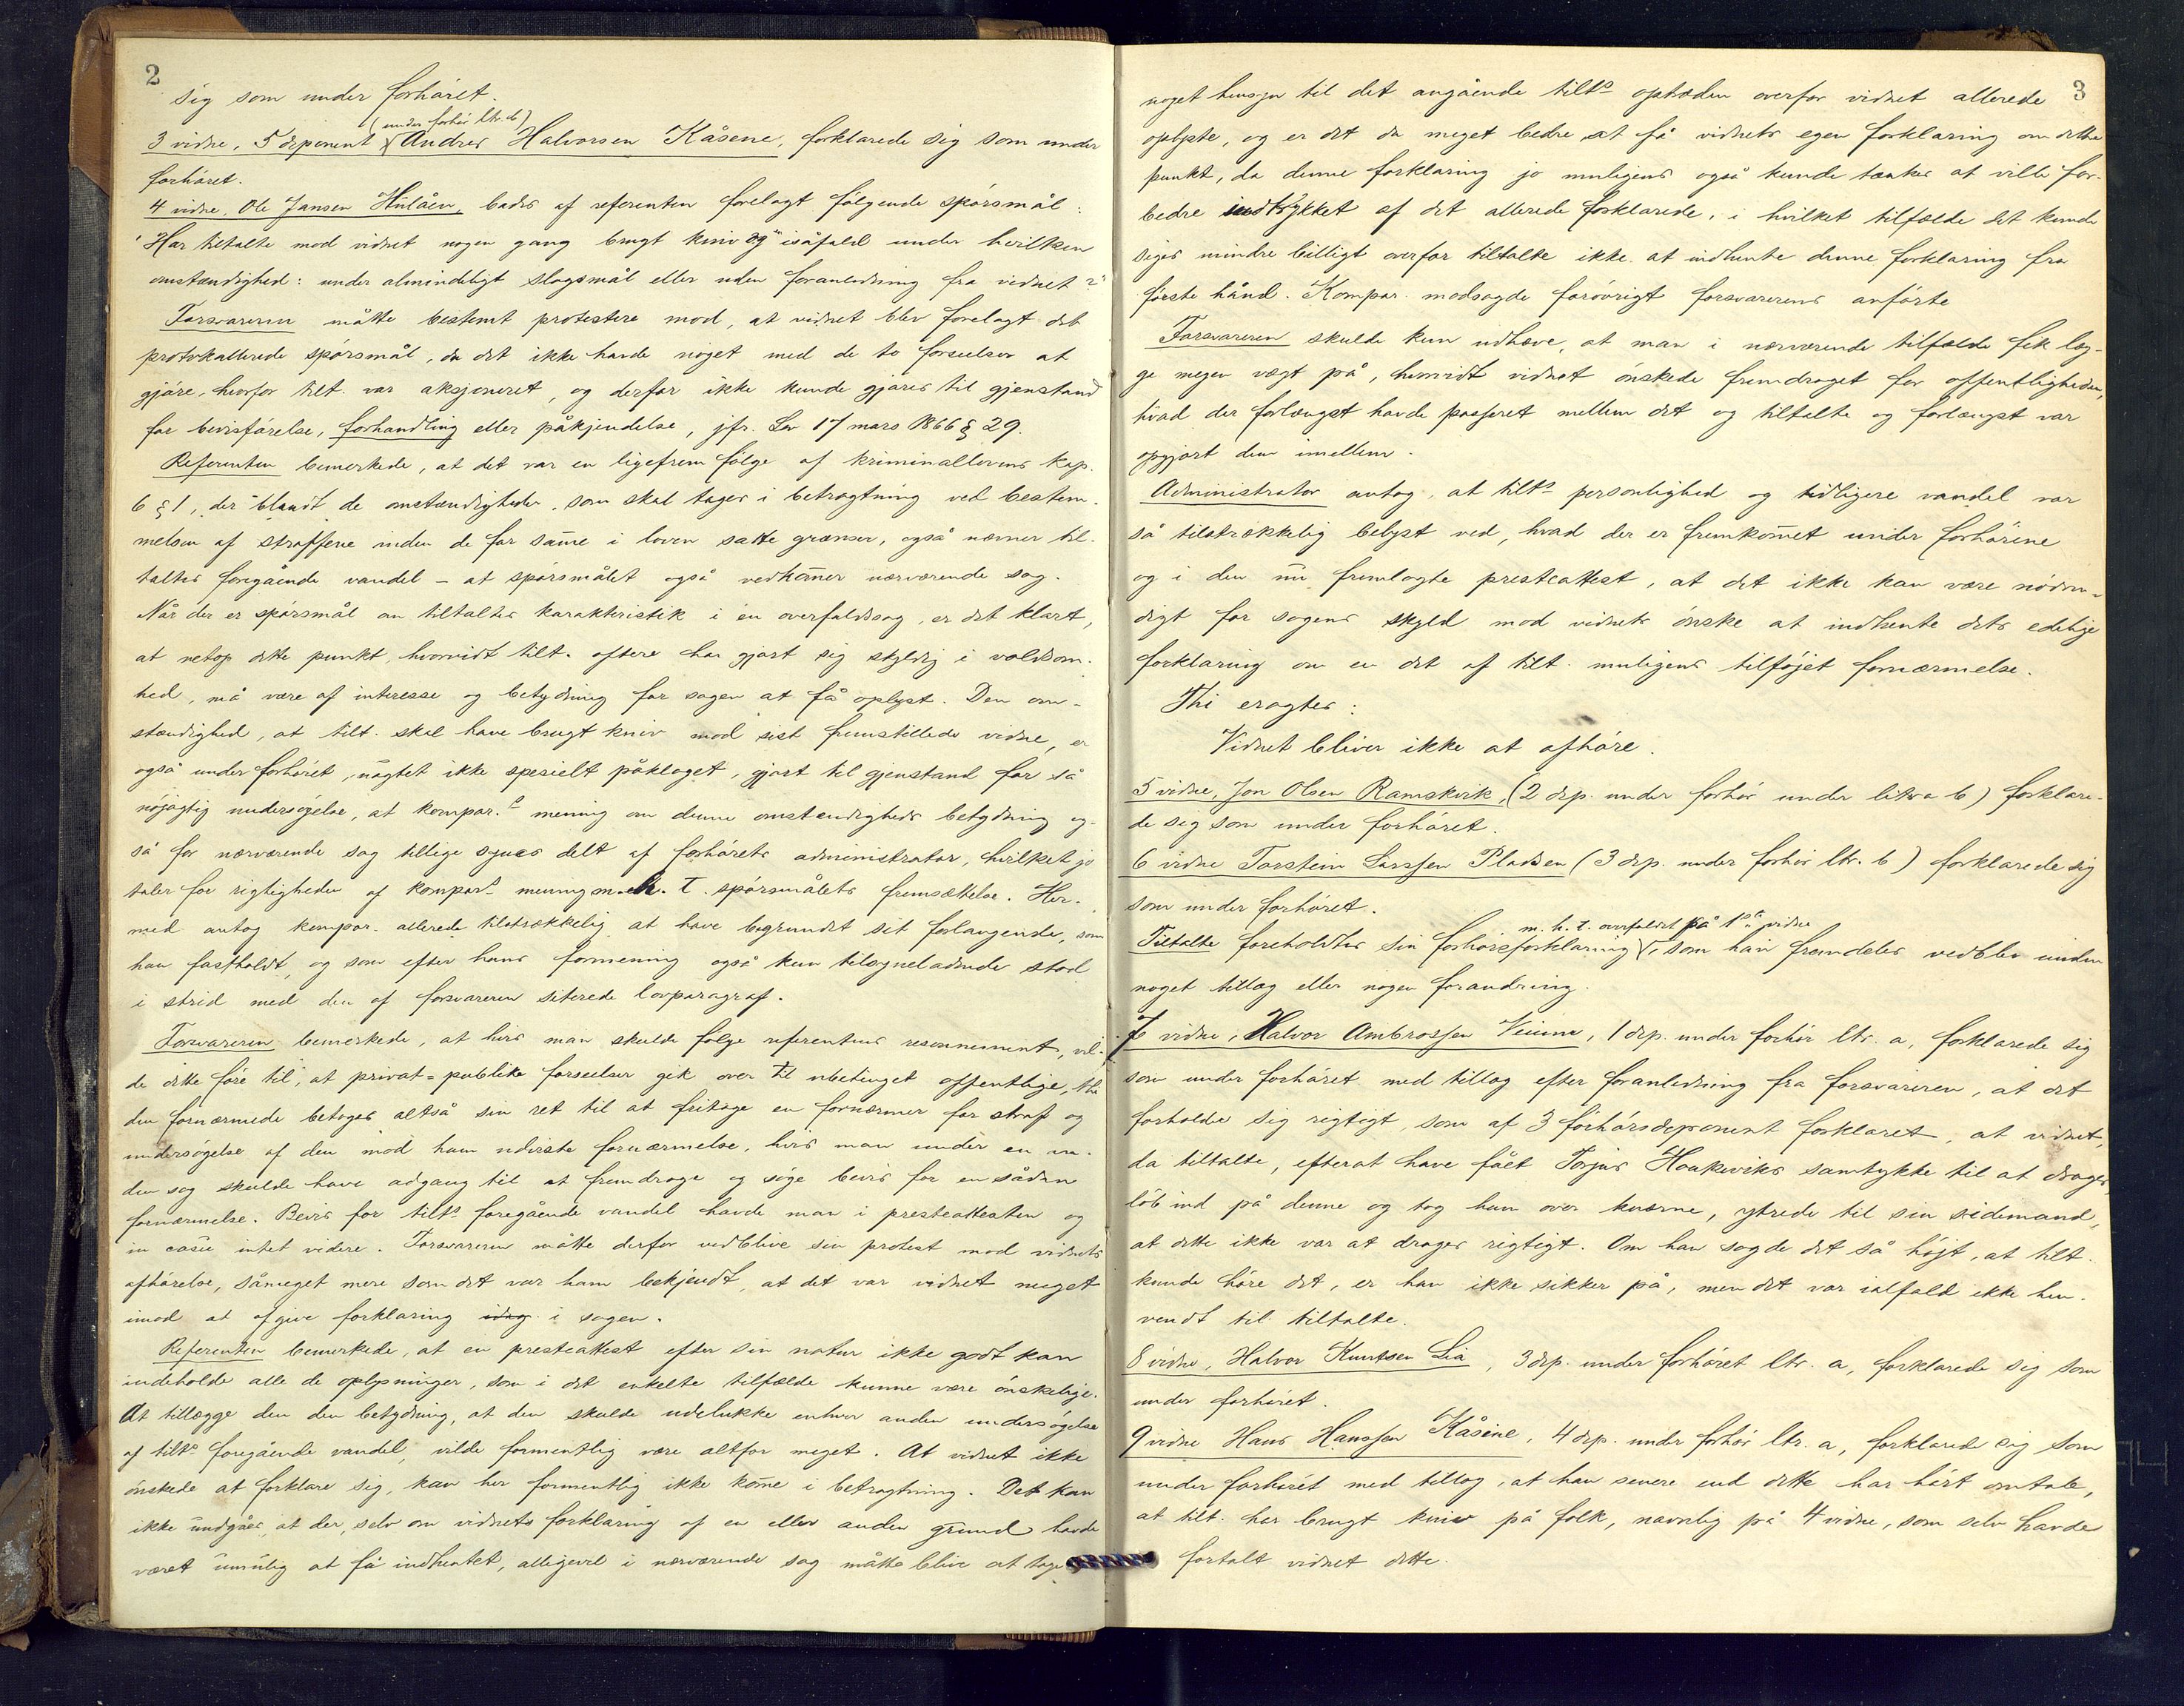 2
sig som under forhöret.
(under forhör ltr. b)
3 vidne, 5 deponent Andres Halvorsen Kåsene, forklarede sig som under
forhöret.
4 vidne, Ole Jansen Hulåen, bades af referenten forelagt fölgende spörsmål:
"Har tiltalte mod vidnet nogen gang brugt kniv og isåfald under hvilken
omstændighed: under almindeligt slagsmål eller uden foranledning fra vidnet?"
Forsvareren måtte bestemt protestere mod, at vidnet blev forelagt det
protokollerede spörsmål, da det ikke havde noget med de to forseelser at
gjöre, hvorfor tilt. var aksjoneret, og derfor ikke kunde gjöres til gjenstand
for bevisförelse, forhandling eller påkjendelse, jfr. Lov 17 mars 1866 § 29.
Referenten bemerkede, at det var en ligefrem fölge af kriminallovens kap.
6 § 1, der blandt de omstændigheder, som skal tages i betragtning ved bestem-
melsen af straffene inden de for same i loven satte grænser, også nævner til-
taltes foregående vandel – at spörsmålet også vedkomer nærværende sag.
Når der er spörsmål om tiltaltes karakteristik i en overfaldssag, er det klart,
at netop dette punkt, hvorvidt tilt. oftere har gjort sig skyldig i voldsom-
hed, må være af interesse og betydning for sagen at få oplyst. Den om-
stændighed, at tilt. skal have brugt kniv mod sist fremstillede vidne, er
også under forhöret, uagtet ikke spesielt påklaget, gjort til gjenstand for så
nöjagtig undersögelse, at kompar.s mening om denne omstendigheds betydning og-
så for nærværende sag tillige synes delt af forhörets administrator, hvilket jo
taler for rigtigheden af kompars mening m. h. t. spörsmålets fremsættelse. Her-
med antog kompar. allerede tilstrækkelig at have begrundet sit forlangende, som
han fastholdt, og som efter hans formening også kun tilsyneladende stod
i strid med den af forsvareren siterede lovparagraf.
Forsvareren bemerkede, at hvis man skulde fölge referentens resonnement, vil-
de dette före til, at privat-publike forseelser gik over til ubetinget offentlige, thi
den fornærmede betoges altså sin ret til at fritage en fornærmer for straf og
undersögelse af den mod ham udviste fornærmelse, hvis man under en an-
den sag skulde have adgang til at fremdrage og söge bevis for en sådan
fornærmelse. Bevis for tilts foregående vandel havde man i presteattesten og
in casu intet videre. Forsvareren måtte derfor vedblive sin protest mod vidnets
afhörelse, såmeget mere som det var ham bekjendt, at det var vidnet meget
imod at afgive forklaring idag i sagen.
Referenten bemerkede, at en presteattest efter sin natur ikke godt kan
indeholde alle de oplysninger, som i det enkelte tilfælde kunne være önskelige.
At tillægge den den betydning, at den skulde udelukke enhver anden undersögelse
af tilts foregående vandel, vilde formentlig være altfor meget. At vidnet ikke
önskede at forklare sig, kan her formentlig ikke kome i betragtning. Det kan
ikke undgåes, at der, selv om vidnets forklaring af en eller anden grund havde
været umulig at få indhentet, alligevel i nærværende sag måtte blive at tage
3
noget hensyn til det angående tilts optræden overfor vidnet allerede
oplyste, og er det da meget bedre at få vidnets egen forklaring om dette
punkt, da denne forklaring jo muligens også kunde tænkes at ville for-
bedre indtrykket af det allerede forklarede, i hvilket tilfælde det kunde
siges mindre billigt overfor tiltalte ikke at indhente denne forklaring fra
förste hånd. Kompar. modsagde forövrigt forsvarerens anförte
Forsvareren skulde kun udhæve, at man i nærværende tilfælde fik læg-
ge megen vægt på, hvorvidt vidnet önskede fremdraget for offentligheden,
hvad der forlængst havde passeret mellem det og tiltalte og forlængst var
opgjort dem imellem.
Administrator antog, at tilts personlighed og tidligere vandel var
så tilstrækkelig belyst ved, hvad der er fremkomet under forhörene
og i den nu fremlagte presteattest, at det ikke kan være nödven-
digt for sagens skyld mod vidnets önske at indhente dets edelige
forklaring om en det af tilt. muligens tilföjet fornærmelse.
Thi eragtes:
Vidnet bliver ikke at afhöre.
5 vidne, Jon Olsen Ramskerk, (2 dep. under forhör under litra b) forklare-
de sig som under forhöret.
6 vidne Torstein Larssen Pladsen (3 dep. under forhör ltr. b) forklarede sig
som under forhöret.
m. h. t. overfaldet på 1ste vidne
Tiltalte foreholdtes sin forhörsforklaring, som han fremdeles vedblev uden
noget tillæg eller nogen forandring.
7 vidne, Halvor Ambrossen Veium, 1 dep. under forhör ltr. a, forklarede sig
som under forhöret med tillæg efter foranledning fra forsvareren, at det
forholder sig rigtigt, som af 3 forhörsdeponent forklaret, at vidnet,
da tiltalte, efterat have fået Torjus Haakeviks samtykke til at drages,
löb ind på denne og tog ham over knærne, ytrede til sin sidemand,
at dette ikke var at drages rigtigt. Om han sagde det så höjt, at tilt.
kunde höre det, er han ikke sikker på, men det var ialfald ikke hen-
vendt til tiltalte.
8 vidne, Halvor Knutsen Lia, 3 dep. under forhöret ltr. a, forklarede sig som
under forhöret.
9 vidne Hans Hanssen Kåsene, 4 dep. under forhör ltr. a, forklarede sig som
under forhöret med tillæg, at han senere end dette har hört omtale,
at tilt. har brugt kniv på folk, navnlig på 4 vidne, som selv havde
fortalt vidnet dette.